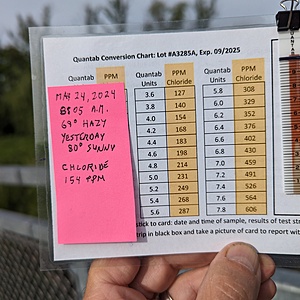 Quantab Conversion Chart: Lot #A3285A, Exp. 09/2025
Quantab PPM
Quantab Units PPM Chloride
Quantab Units PPM Chloride
MAY 24, 2024
8:05 A.M.
69° HAZY
YESTERDAY
80° SUNNY
CHLORIDE
154 PPM
3.6 127
3.8 140
4.0 154
4.2 168
4.4 183
4.6 198
4.8 214
5.0 231
5.2 249
5.4 268
5.6 287
5.8 308
6.0 329
6.2 352
6.4 376
6.6 402
6.8 430
7.0 459
7.2 491
7.4 526
7.6 564
7.8 606
stick to card: date and time of sample, results of test str
trip in black box and take a picture of card to report with